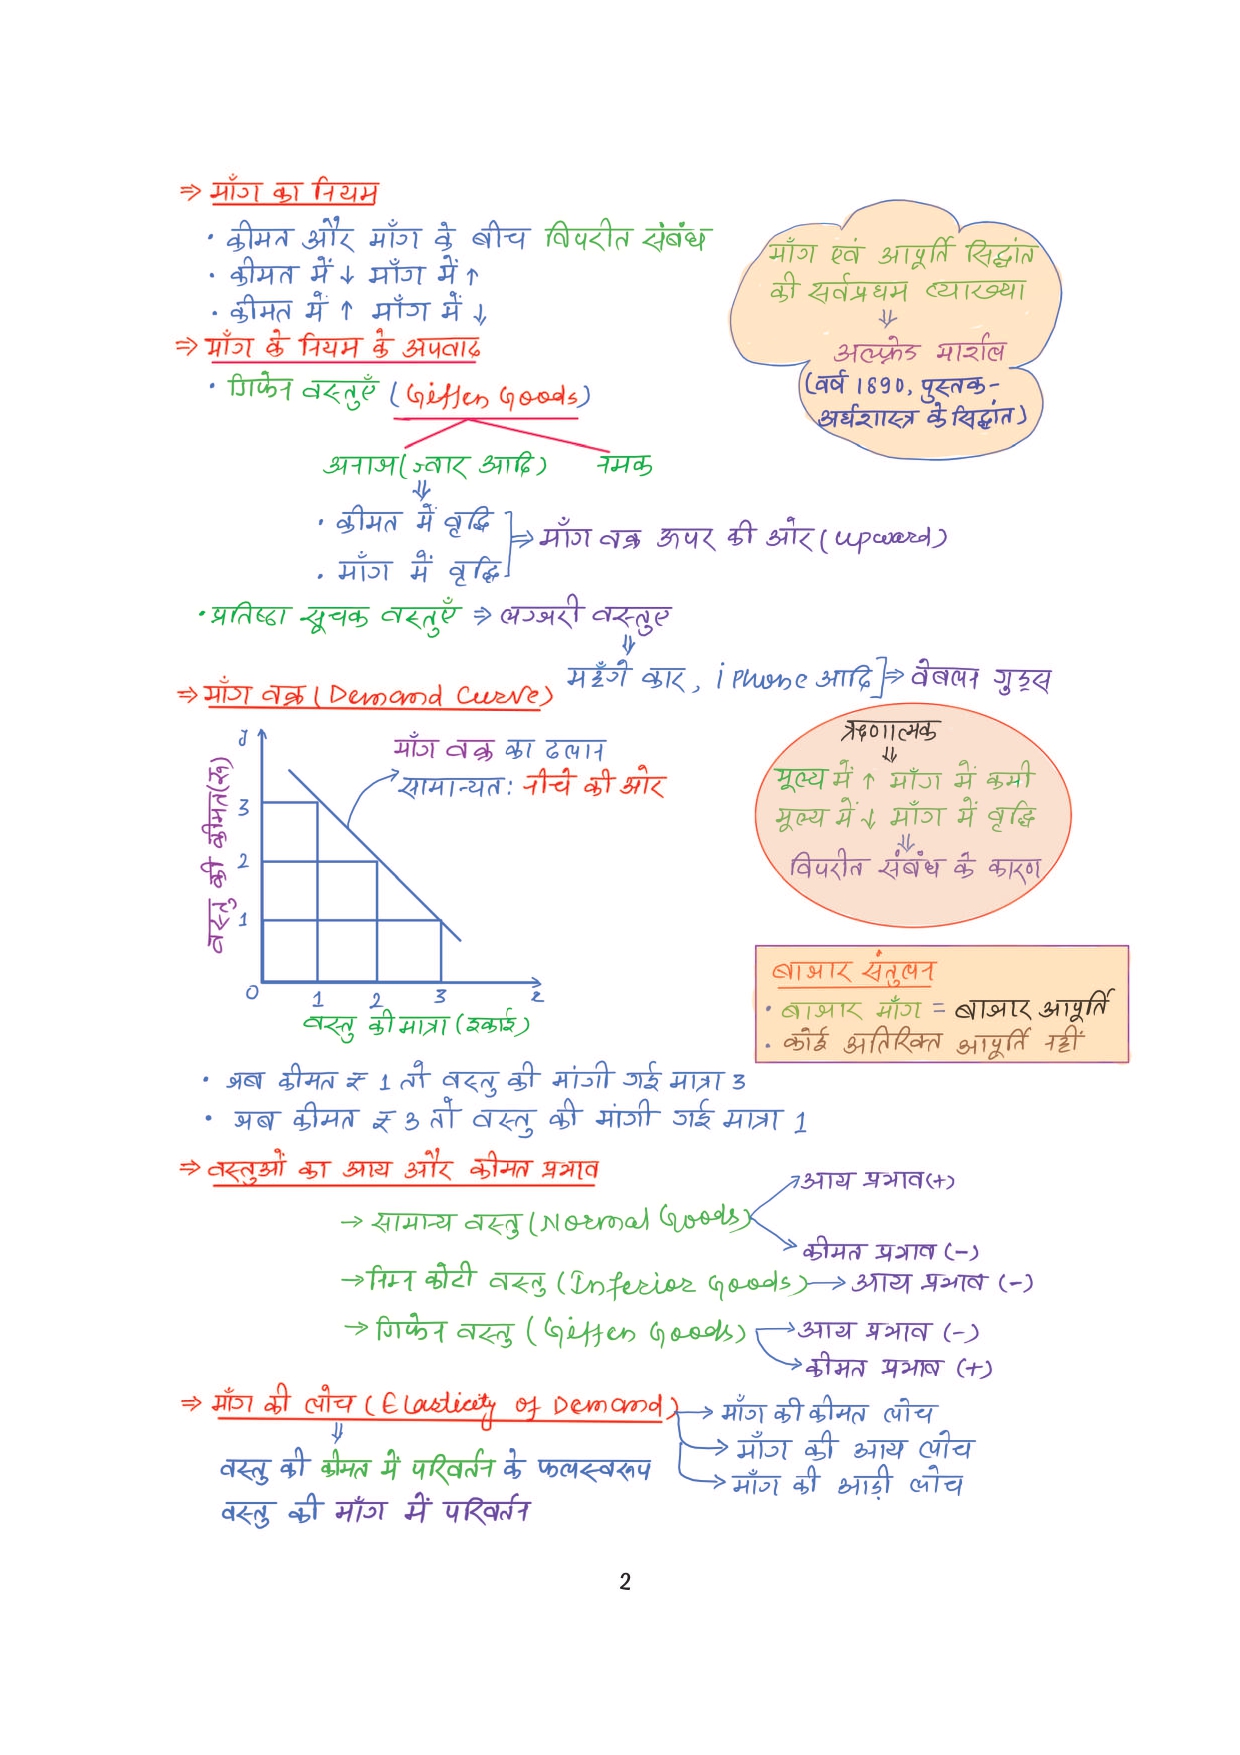 ⇒ माँग का नियम
· कीमत और माँग के बीच विपरीत संबंध
· कीमत में ↓ माँग में ↑
· कीमत में ↑ माँग में ↓
माँग एवं आपूर्ति सिद्धांत
की सर्वप्रथम व्याख्या
⇓
अल्फ्रेड मार्शल
(वर्ष 1890, पुस्तक-
अर्थशास्त्र के सिद्धांत)
⇒ माँग के नियम के अपवाद
· गिफेन वस्तुएँ (Giffen Goods)
अनाज(ज्वार आदि) नमक
⇓
· कीमत में वृद्धि
· माँग में वृद्धि
⇒ माँग वक्र ऊपर की ओर(upward)
· प्रतिष्ठा सूचक वस्तुएँ ⇒ लग्जरी वस्तुए
⇓
महँगे कार, iPhone आदि] ⇒ वेबलन गुड्स
⇒ माँग वक्र (Demand Curve)
माँग वक्र का ढलान
सामान्यत: नीचे की ओर
वस्तु की कीमत(रु)
y
3
2
1
0 1 2 3 x
वस्तु की मात्रा (इकाई)
ऋणात्मक
⇓
मूल्य में ↑ माँग में कमी
मूल्य में ↓ माँग में वृद्धि
⇓
विपरीत संबंध के कारण
बाजार संतुलन
· बाजार माँग = बाजार आपूर्ति
· कोई अतिरिक्त आपूर्ति नहीं
· जब कीमत ₹ 1 तो वस्तु की मांगी गई मात्रा 3
· जब कीमत ₹ 3 तो वस्तु की मांगी गई मात्रा 1
⇒ वस्तुओं का आय और कीमत प्रभाव
→ सामान्य वस्तु (Normal Goods)
आय प्रभाव(+)
कीमत प्रभाव (-)
→ निम्न कोटी वस्तु (Inferior Goods) → आय प्रभाव (-)
→ गिफेन वस्तु (Giffen Goods) → आय प्रभाव (-)
→ कीमत प्रभाव (+)
⇒ माँग की लोच (Elasticity of Demand) → माँग की कीमत लोच
→ माँग की आय लोच
→ माँग की आड़ी लोच
⇓
वस्तु की कीमत में परिवर्तन के फलस्वरूप
वस्तु की माँग में परिवर्तन
2